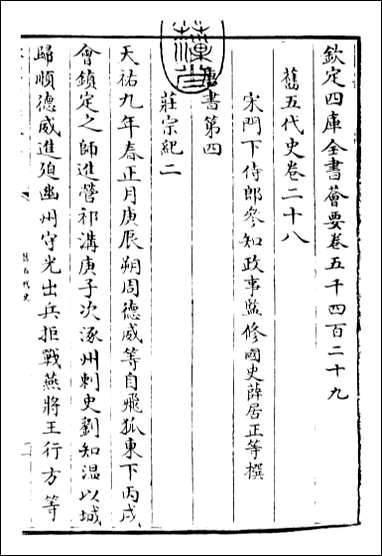 欽定四庫全書薈要卷五千四百二十九
舊五代史卷二十八
宋門下侍郎參知政事監修國史薛居正等撰
唐書第四
莊宗紀二
天祐九年春正月庚辰朔周德威等自飛狐東下丙戌
會鎮定之師進營祁溝庚子次涿州刺史劉知溫以城
歸順德威進迫幽州守光出兵拒戰燕將王行方等
舊五代史